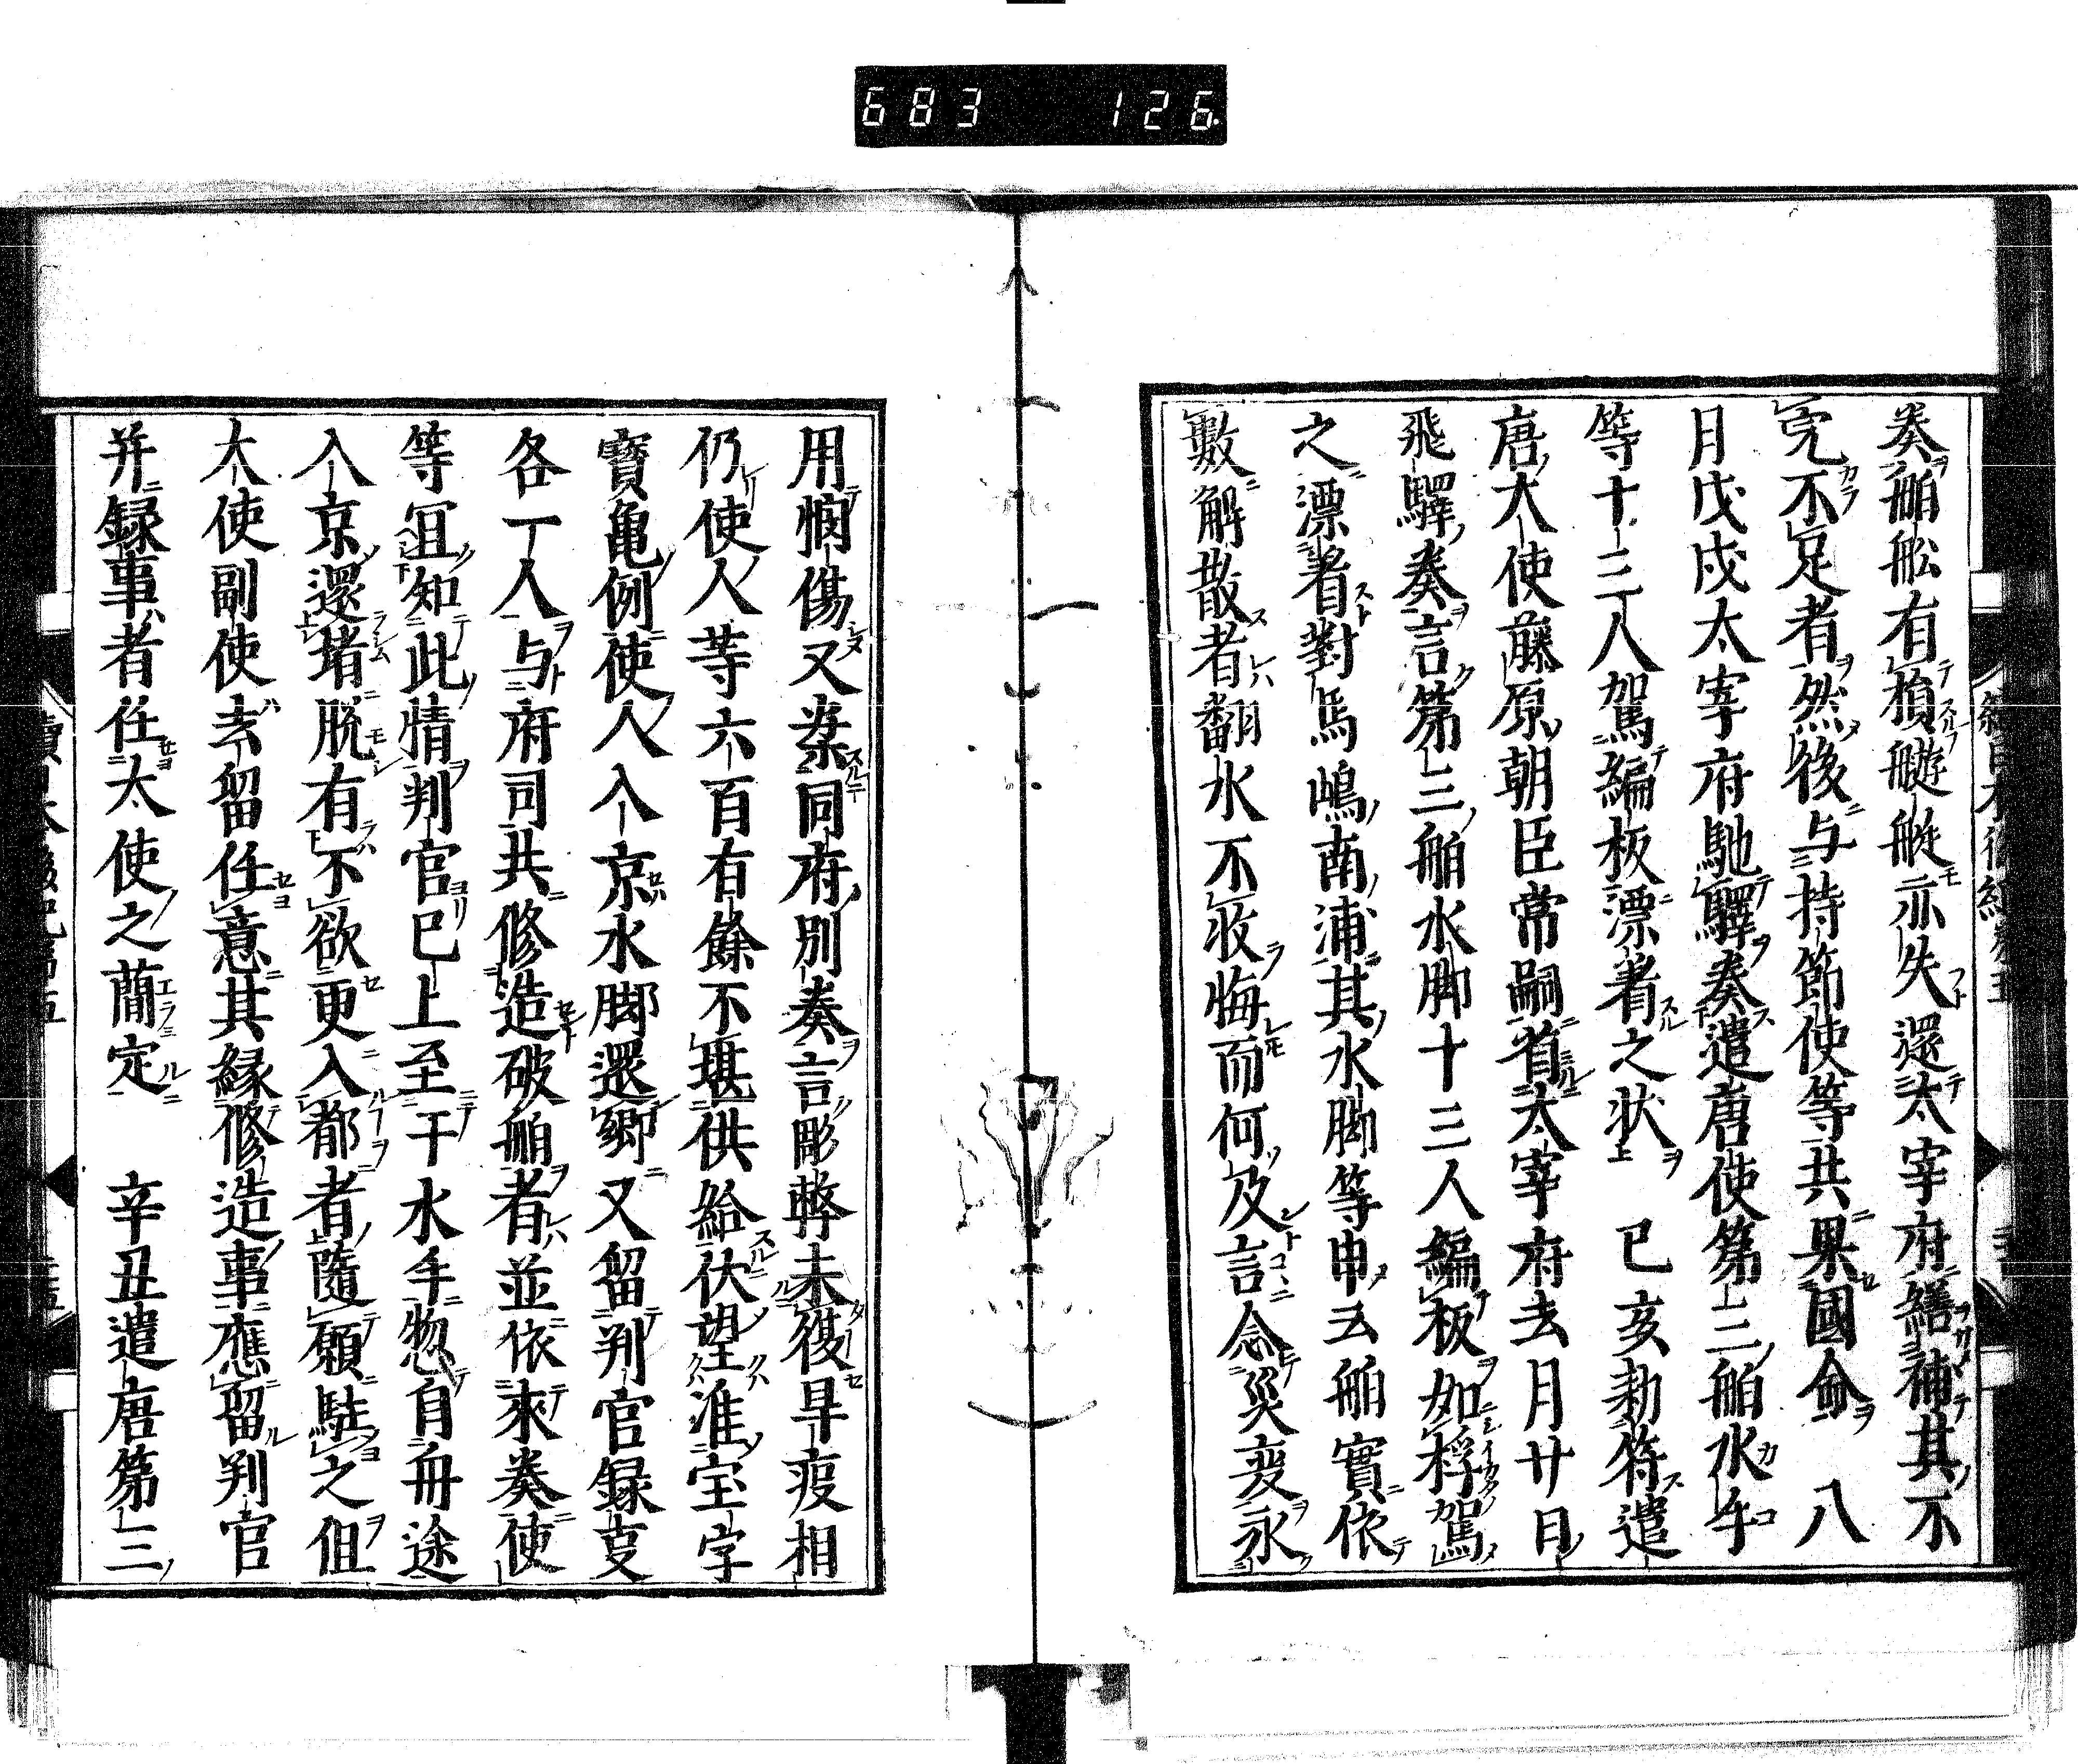 683 126
奏舶舩有損艇艇亦失還太宰府繕補其不
完不足者然後与持節使等共果國命　八
月戊戌太宰府馳驛奏遣唐使第三舶水手
等十三人駕編板漂着之状　己亥勅符遣
唐大使藤原朝臣常嗣省太宰府去月廿日
飛驛奏言第三舶水脚十三人編板如桴駕
之漂着對馬嶋南浦其水脚等申云舶實依
數解散者翻水不收悔而何及言念災変永
用憫傷又案同府別奏言彫弊未復旱疫相
仍使人等六百有餘不堪供給伏望准宝字
寶亀例使人入京水脚還郷又留判官録事
各一人与府司共修造破舶者並依來奏使
等冝知此情判官已上至于水手惣自舟途
入京還堵脱有不欲更入都者隨願駐之但
大使副使去留任意其縁修造事應留判官
并録事者任太使之蕳定　辛丑遣唐第三